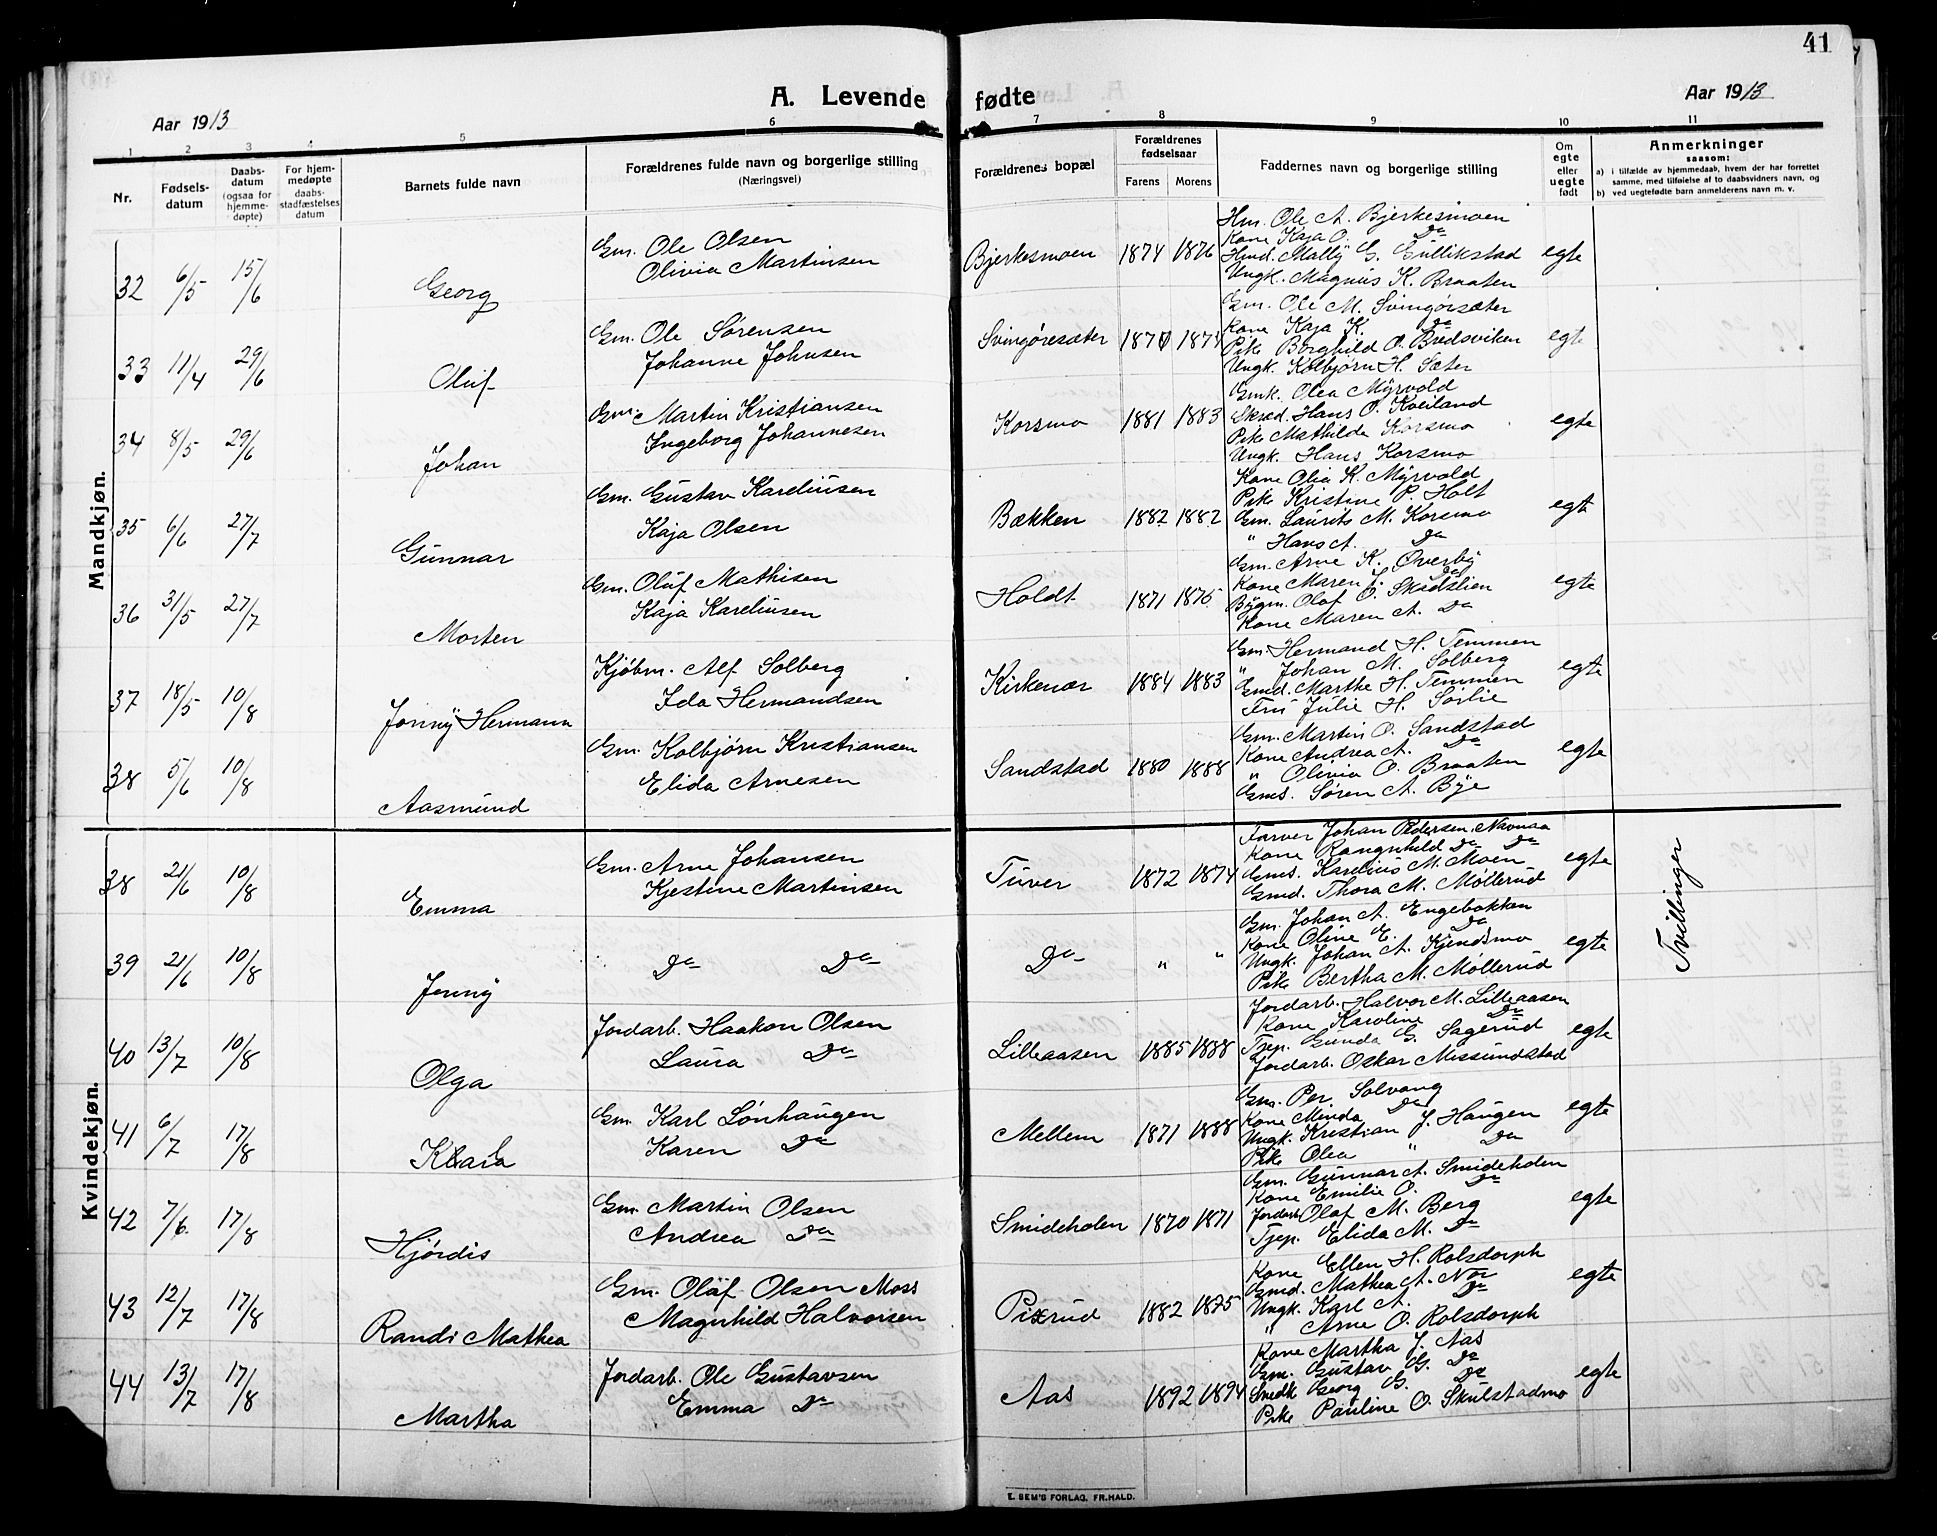 41
A. Levende fødte
Aar 1913
Aar 1913
1 2 3 4 5 6 7 8 9 10 11
Nr.
Fødsels-datum
Daabs-datum (ogsaa for hjemme-døpte)
For hjem-medøpte daabs-stadfæstelses datum
Barnets fulde navn
Forældrenes fulde navn og borgerlige stilling
(Næringsvei)
Forældrenes bopæl
Forældrenes fødselsaar
Farens Morens
Faddernes navn og borgerlige stilling
Om egte eller uegte født
Anmerkninger
saasom:
a) i tilfælde av hjemmedaab, hvem der har forrettet samme, med tilføielse af to daabsvidners navn, og
b) ved uegtefødte barn anmelderens navn m. v.
Mandkjøn.
32 6/5 15/6 Georg
Gm. Ole Olsen
Olivia Martinsen
Bjerkesmoen 1874 1876
Hm. Ole A. Bjerkesmoen
Kone Kaja O. Do
Hmd. Mally G. Gullikstad
Ungk. Magnus K. Braaten
egte
33 11/4 29/6 Oluf
Gm. Ole Sørensen
Johanne Johnsen
Svingøresæter 1874
Gm. Ole M. Svingørsæter
Kone Kaja K. Do
Pike Borghild O. Bredsviken
Ungk. Kolbjørn H. Sæter
egte
34 8/5 29/6 Johan
Gm. Martin Kristiansen
Ingeborg Johannesen
Korsmo 1881 1883
Gmk. Olea Myrvold
Skræd. Hans O. Kveiland
Pike Mathilde Korsmo
Ungk. Hans Korsmo
egte
35 6/6 27/7 Gunnar
Gm. Gustav Kareliusen
Kaja Olsen
Bækken 1882 1882
Kone Olia K. Myrvold
Pike Kristine P. Holt
Gm. Laurits M. Korsmo
" Hans A. Do
egte
36 31/5 27/7 Morten
Gm. Oluf Mathisen
Kaja Kareliusen
Holdt 1871 1875
Gm. Arne K. Overby
Kone Maren J. Do
Bygm. Olaf O. Skadslien
Kone Maren A. Do
egte
37 18/5 10/8 Jonny Hermann
Kjøbm. Alf Solberg
Ida Hermandsen
Kirkenær 1884 1883
Gm. Hermand H. Temmen
" Johan M. Solberg
Gmd. Marthe H. Temmen
Fru Julie H. Sørlie
egte
38 5/6 10/8 Aasmund
Gm. Kolbjørn Kristiansen
Elida Arnesen
Sandstad 1880 1888
Gm. Martin O. Sandstad
Kone Andrea A. Do
" Olivia O. Braaten
Gms. Søren A. Bye
egte
Kvindekjøn.
38 21/6 10/8 Emma
Gm. Arne Johansen
Kjestine Martinsen
Tuver 1872 1874
Farver Johan Pedersen, Navnaa
Kone Rangnhild Do Do
Gms. Karelius M. Moen
Gmd. Thora M. Møllerud
egte
Tvillinger
39 21/6 10/8 Jenny
Do Do
Do " "
Gm. Johan A. Engebakken
Kone Oline E. Do
Ungk. Johan A. Kjendsmo
Pike Bertha M. Møllerud
egte
40 13/7 10/8 Olga
Jordarb. Haakon Olsen
Laura Do
Lilleaasen 1885 1888
Jordarb. Halvor M. Lilleaasen
Kone Karoline Do
Tjep. Gunda G. Sagerud
Jordarb. Oskar Messundstad
egte
41 6/7 17/8 Klara
Gm. Karl Lønhaugen
Karen Do
Mellem 1871 1888
Gm. Per Solvang
Kone Minda Do
Ungk. Kristian J. Haugen
Pike Olea " Do
egte
42 7/6. 17/8 Hjørdis
Gm. Martin Olsen
Andrea Do
Smideholen 1870 1871
Gm. Gunnar A. Smideholen
Kone Emilie O. Do
Jordarb. Olaf M. Berg
Tjep. Elida M. Do
egte
43 12/7 17/8 Randi Mathea
Gm. Olaf Olsen Moss
Magnhild Halvorsen
Pixrud 1882 1875
Kone Ellen H. Rolsdorph
Gmd. Mathea A. Nor
Ungk. Karl A. Do
" Arne O. Rolsdorph
egte
44 13/7 17/8 Martha
Jordarb. Ole Gustavsen
Emma Do
Aas 1892 1894
Kone Martha J. Aas
Gm. Gustav G. Do
Smedk. Georg G. Do
Pike Pauline O. Skulstadmo
egte
E. SEM'S FORLAG, FR.HALD.